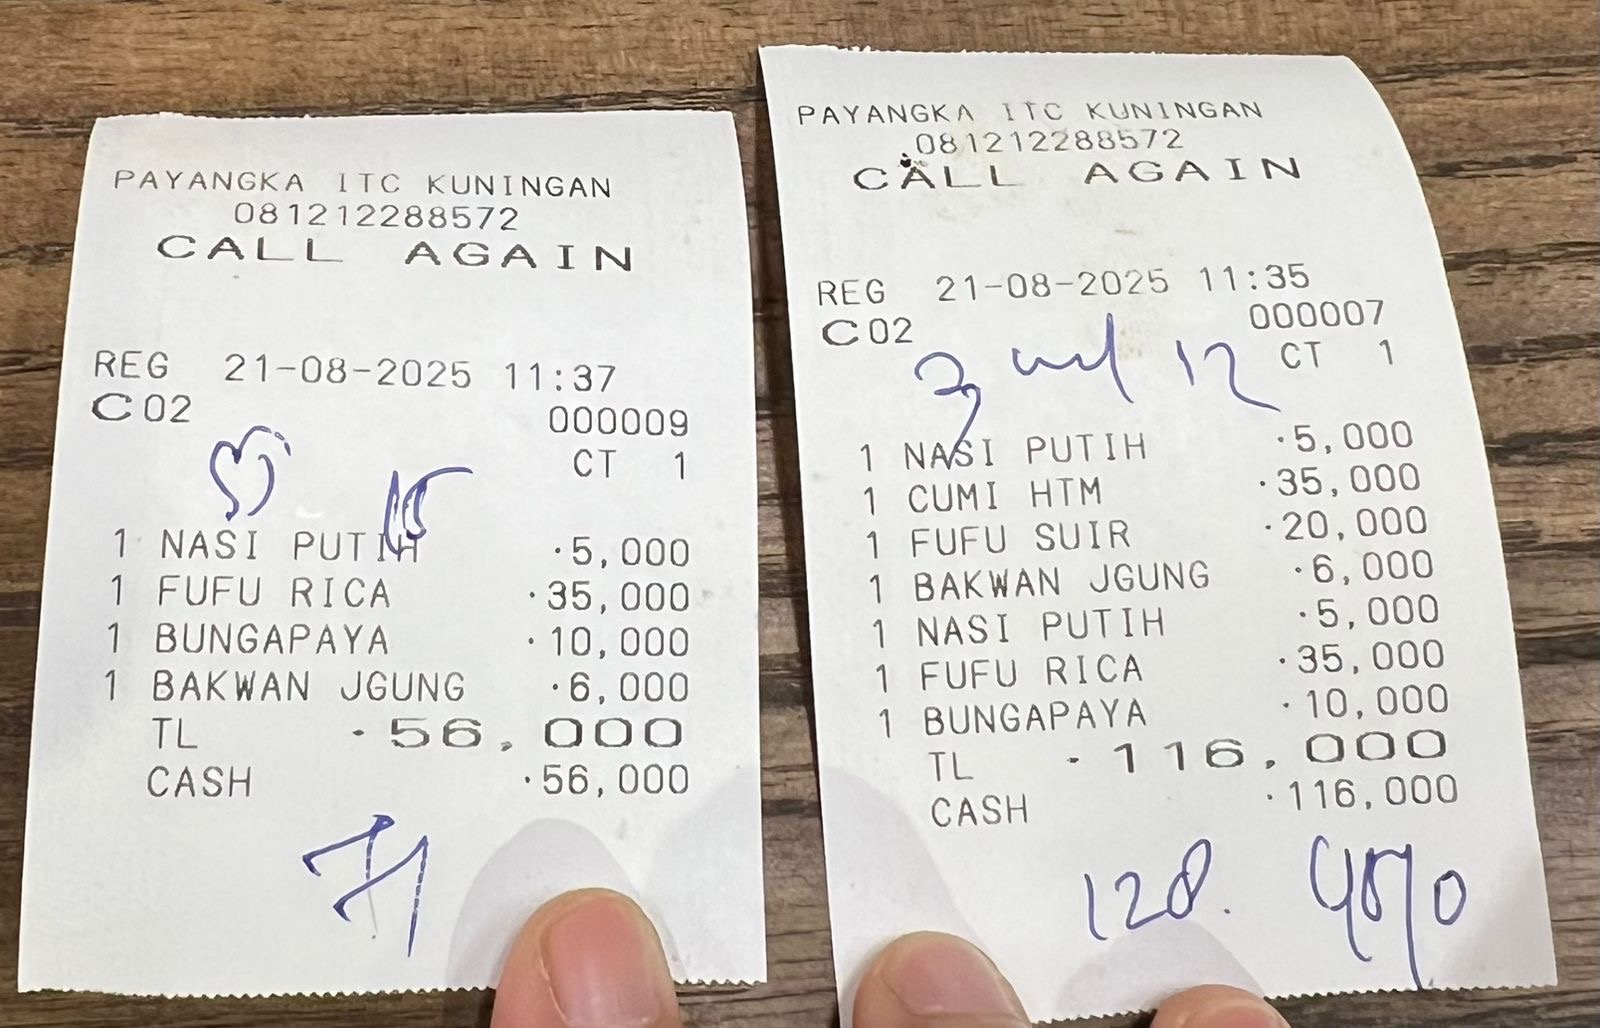 PAYANGKA ITC KUNINGAN
081212288572
CALL AGAIN
REG 21-08-2025 11:37
C02 000009
CT 1
15
1 NASI PUTIH ·5,000
1 FUFU RICA ·35,000
1 BUNGAPAYA ·10,000
1 BAKWAN JGUNG ·6,000
TL ·56,000
CASH ·56,000
71
PAYANGKA ITC KUNINGAN
081212288572
CALL AGAIN
REG 21-08-2025 11:35
C02 000007
CT 1
12
1 NASI PUTIH ·5,000
1 CUMI HTM ·35,000
1 FUFU SUIR ·20,000
1 BAKWAN JGUNG ·6,000
1 NASI PUTIH ·5,000
1 FUFU RICA ·35,000
1 BUNGAPAYA ·10,000
TL ·116,000
CASH ·116,000
128.